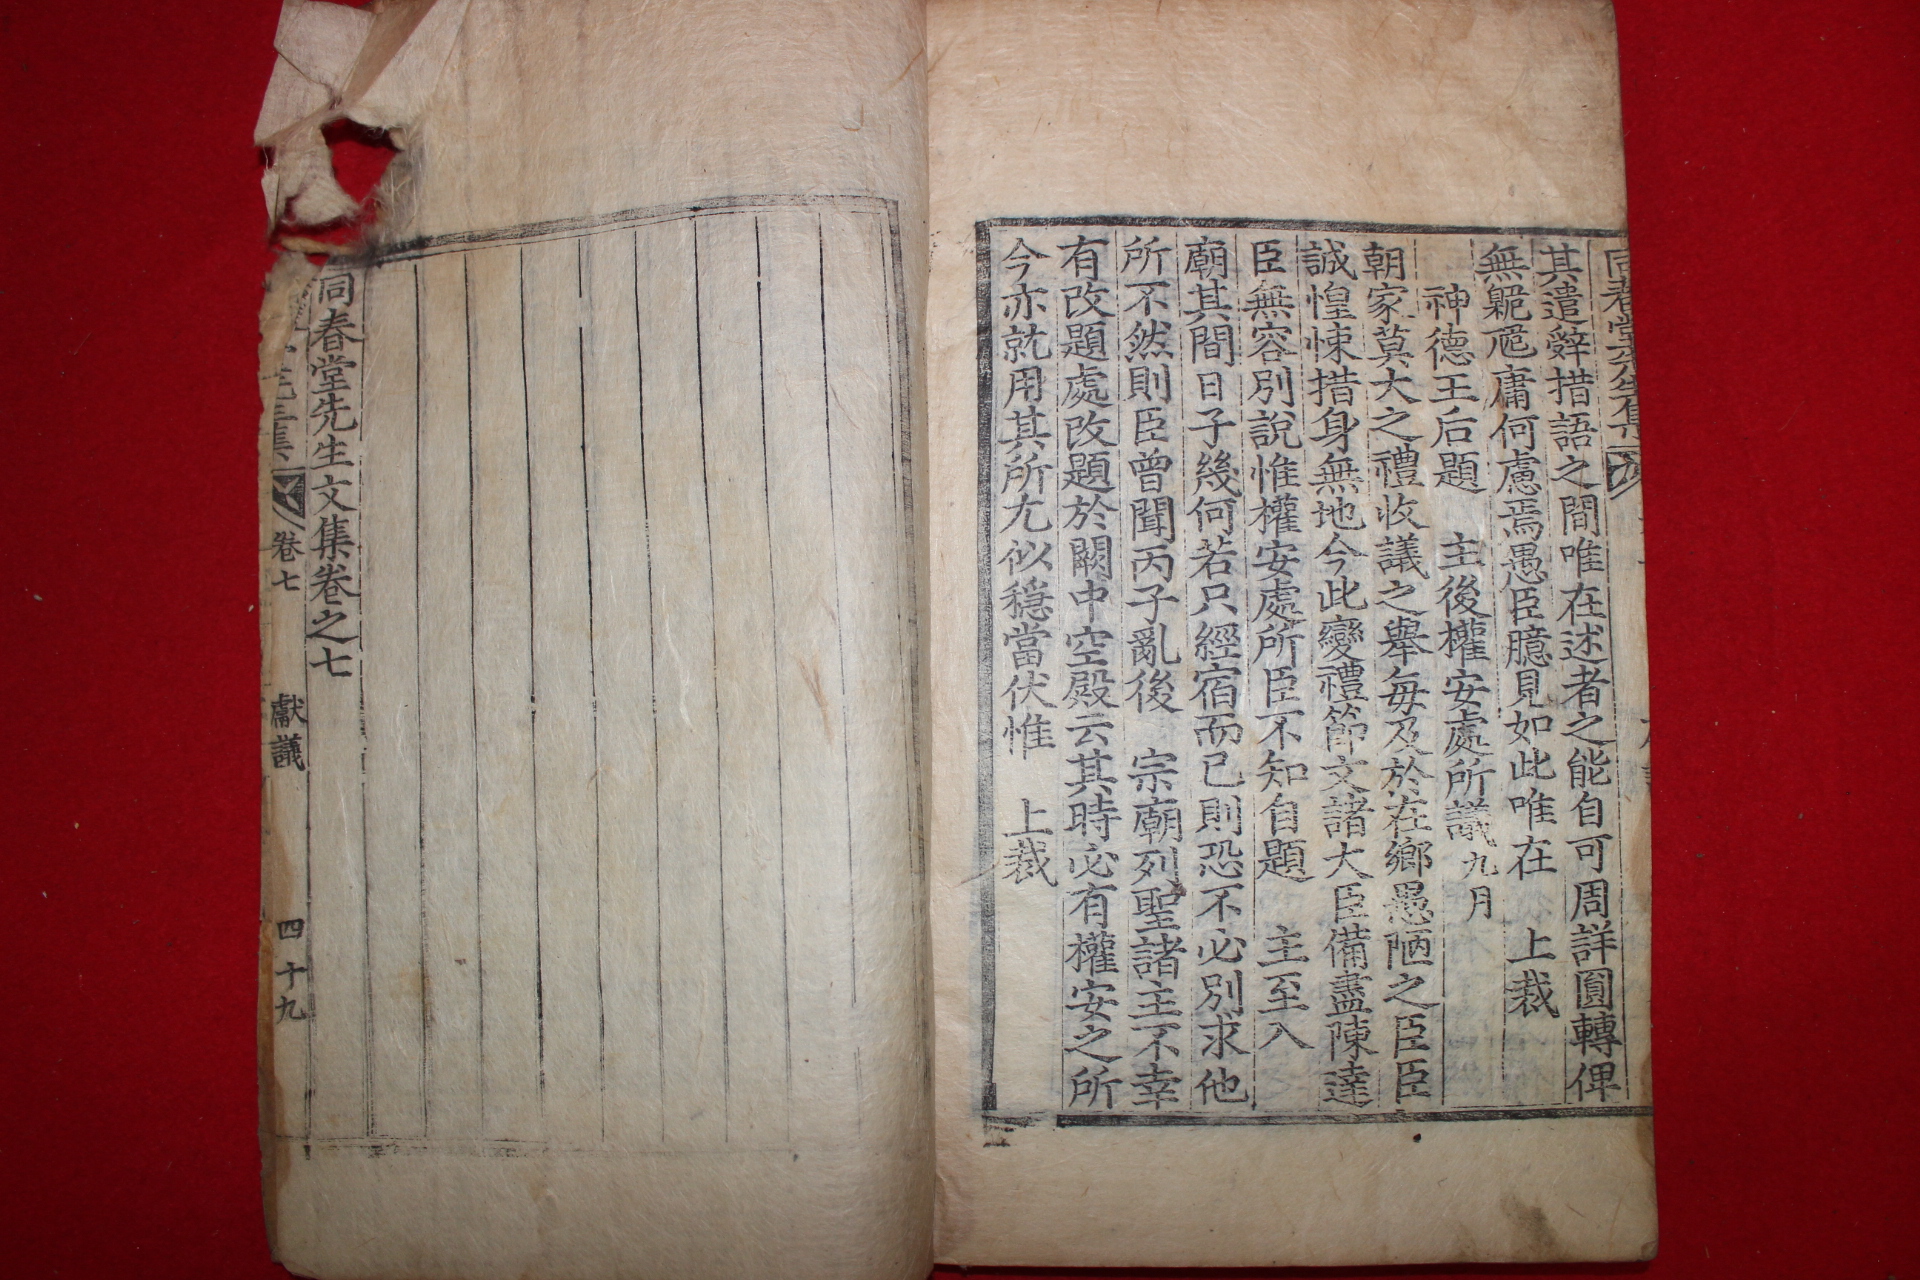 同春堂先生集
其遣辭措語之間唯在述者之能自可周詳圓轉俾
無臲卼庸何慮焉愚臣臆見如此唯在 上裁
神德王后題 主後權安處所議九月
朝家莫大之禮收議之擧每每及於在鄉愚陋之臣臣
誠惶悚措身無地今此變禮節文諸大臣備盡陳達
臣無容別說惟權安處所臣不知自題 主至入
廟其間日子幾何若只經宿而已則恐不必別求他
所不然則臣曾聞丙子亂後 宗廟列聖諸主不幸
有改題處改題於闕中空殿云其時必有權安之所
今亦就用其所尤似穩當伏惟 上裁
同春堂先生文集卷之七
卷七 獻議 四十九